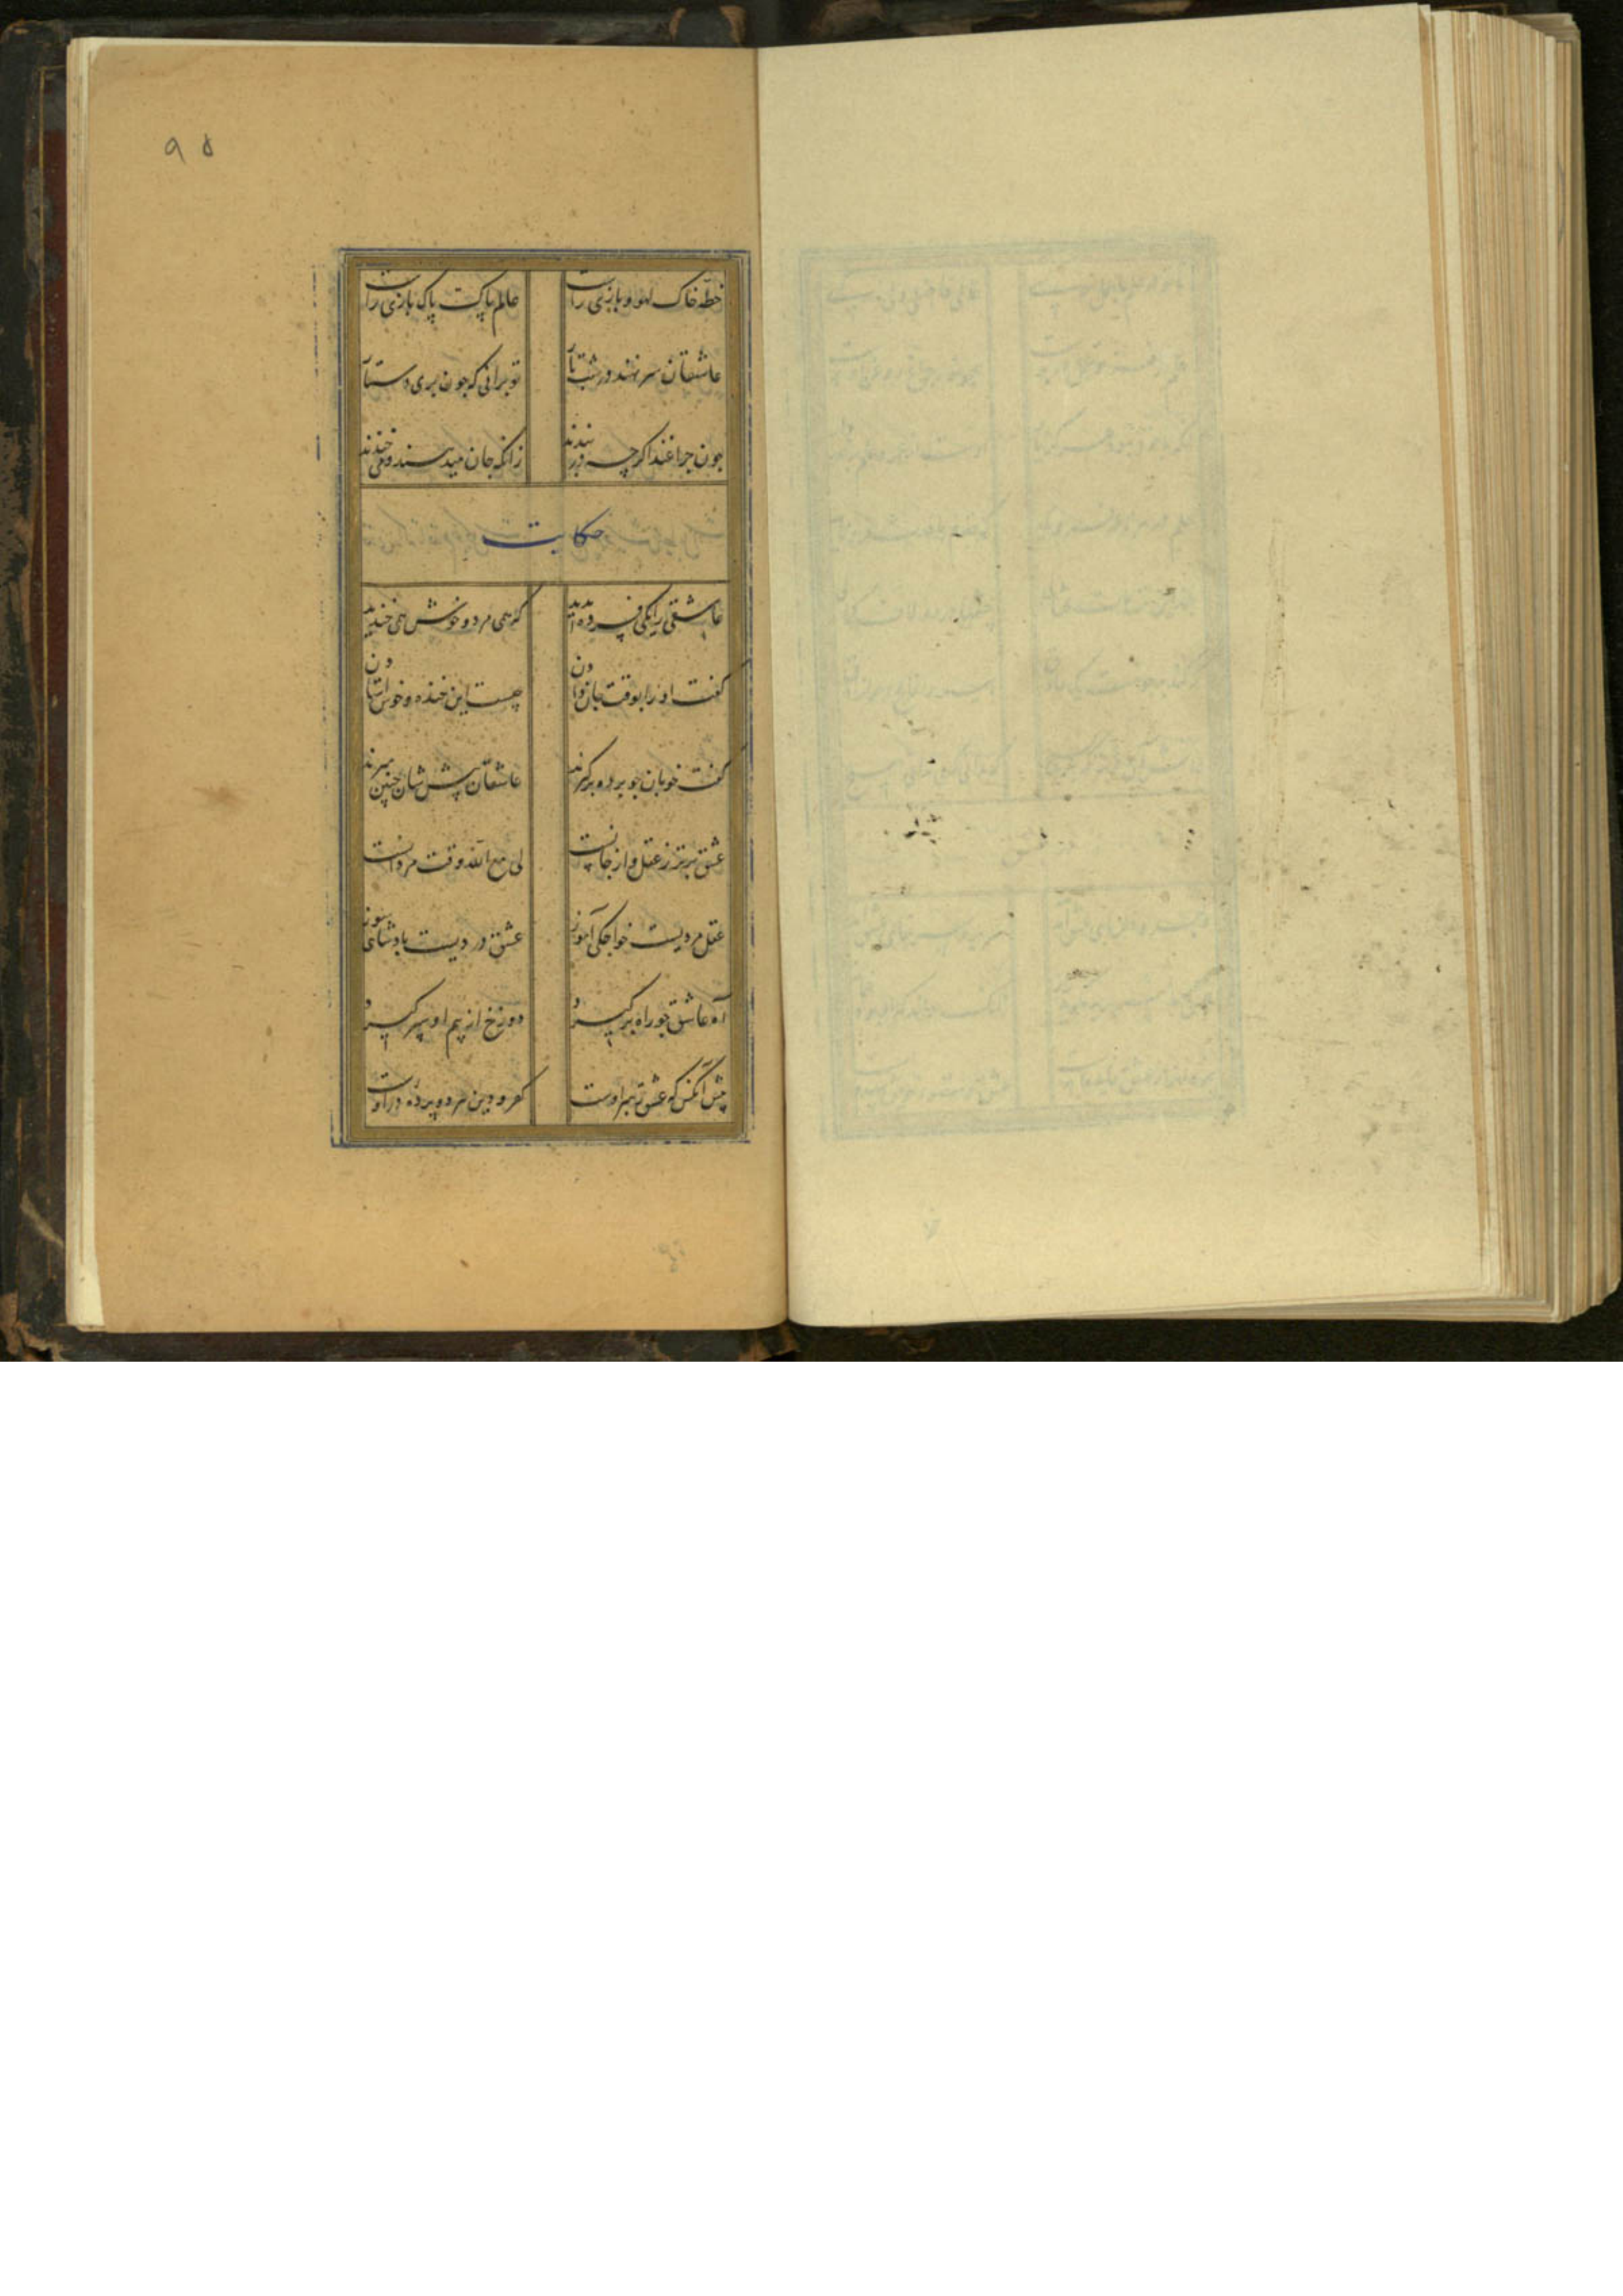 ۹۵
خطّه خاک لهو و بازی راست عالم پاکت پاک بازی راست
عاشقان سر نهند در شب تار تو برانی که چون بری دستار
چون چراغند اکرچه در بندند زانکه جان میدهند و می خندند
حکایت
عاشقی را یکی فسرده بدید که همی مرد و خوش همی خندید
کفت او را بوقت جان دادن چیست این خنده و خوش استادن
کفت خوبان چو پرده برکیرند عاشقان پیش شان چنین میرند
عشق برتر ز عقل و از جانست لی مع الله وقت مردانست
عقل مردیست خواجکی آموز عشق دردیست پادشاهی سوز
آه عاشق چو راه برکیرد دوزخ از بیم او سپر کیرد
پیش آنکس که عشق رهبر اوست کفر و دین هر دو پرده در اوست